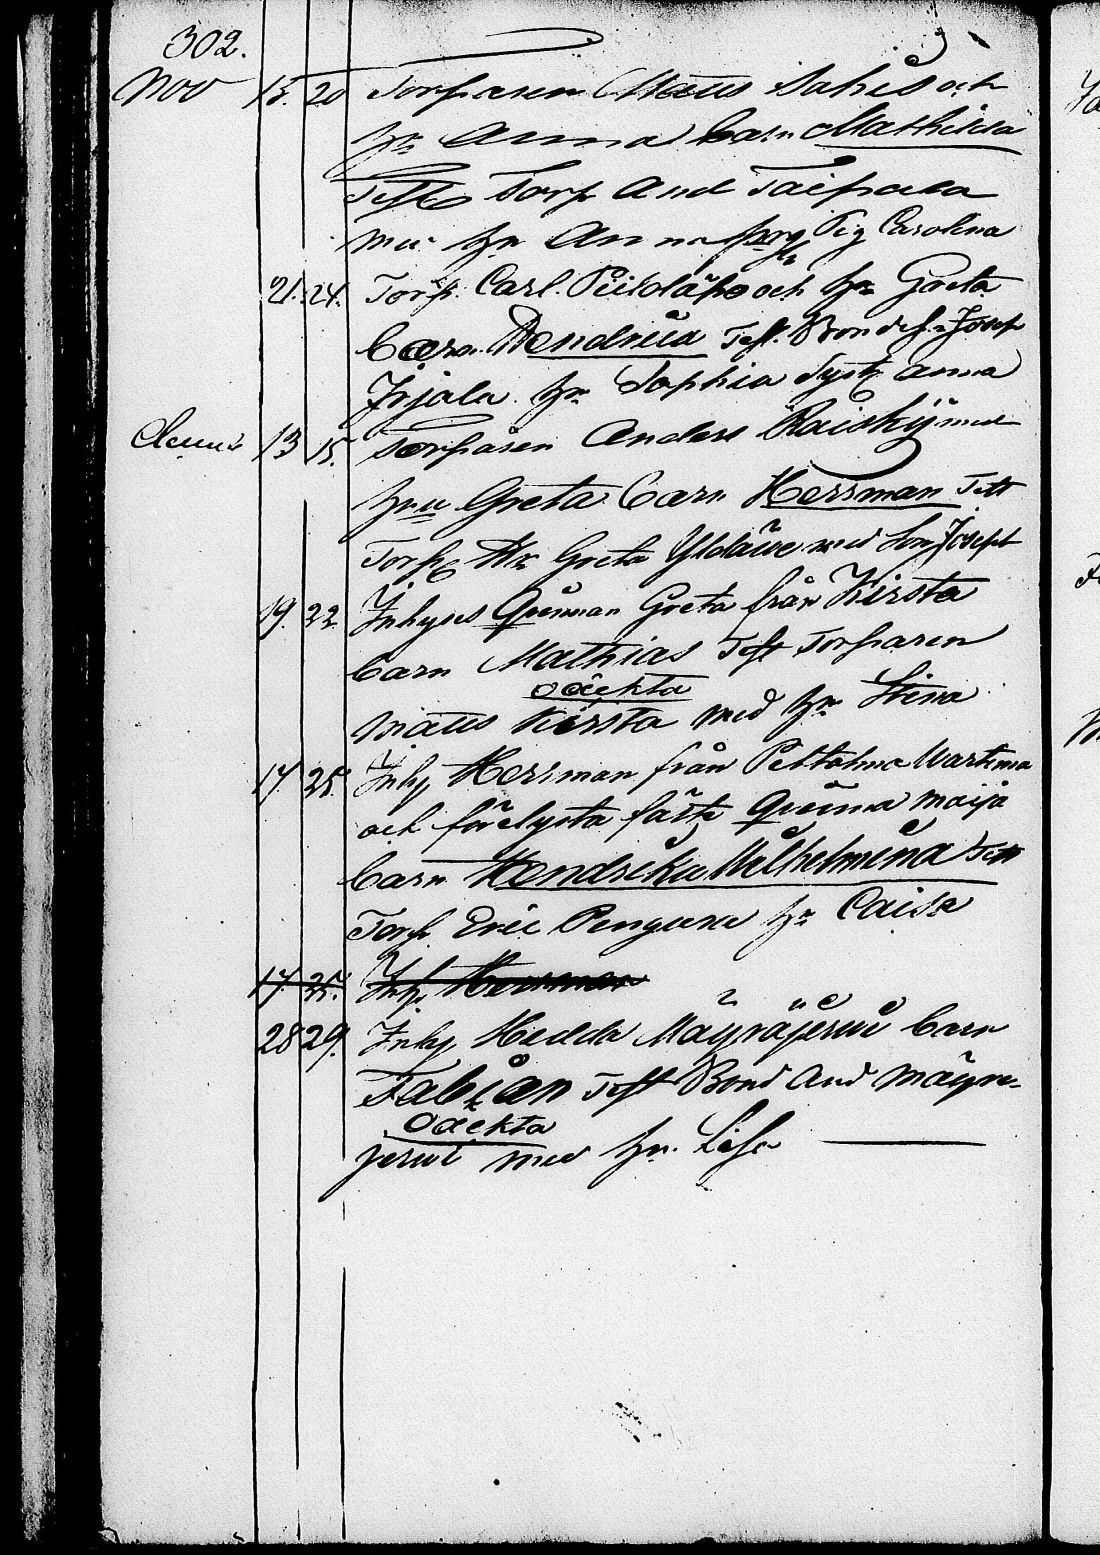 302.
Nov 15. 20 Torparen Matts Sahis och
hu Anna barn Mathilda
Test Torp And Taipala
med hu Anna pig Carolina
21. 24. Torp. Carl och hu Greta
barn Hendrica Test. Bondes. Josef
Irjala hu Sophia Syst anna
13 15. Torparen Anders Raisky med
hu Greta barn Herrman Test
Torp Greta med Son Josept
19. 22 Inhyses Qvinnan Greta från Kirsta
barn Mathias Test Torparen
oäckta
Matts Kirsta med hu Stina
17 25. Inhy Herrman från Wartema
och förelysta Qvinna Maija
barn Hendrika Wilhelmina Test
Torp Eric hu Caisa
17. 25. Inhy Herrman
28 29. Inhy Hedda Mäyräjerwi barn
Fabian Test Bond And Mäyrä-
oäckta
jerwi med hu. Lisa